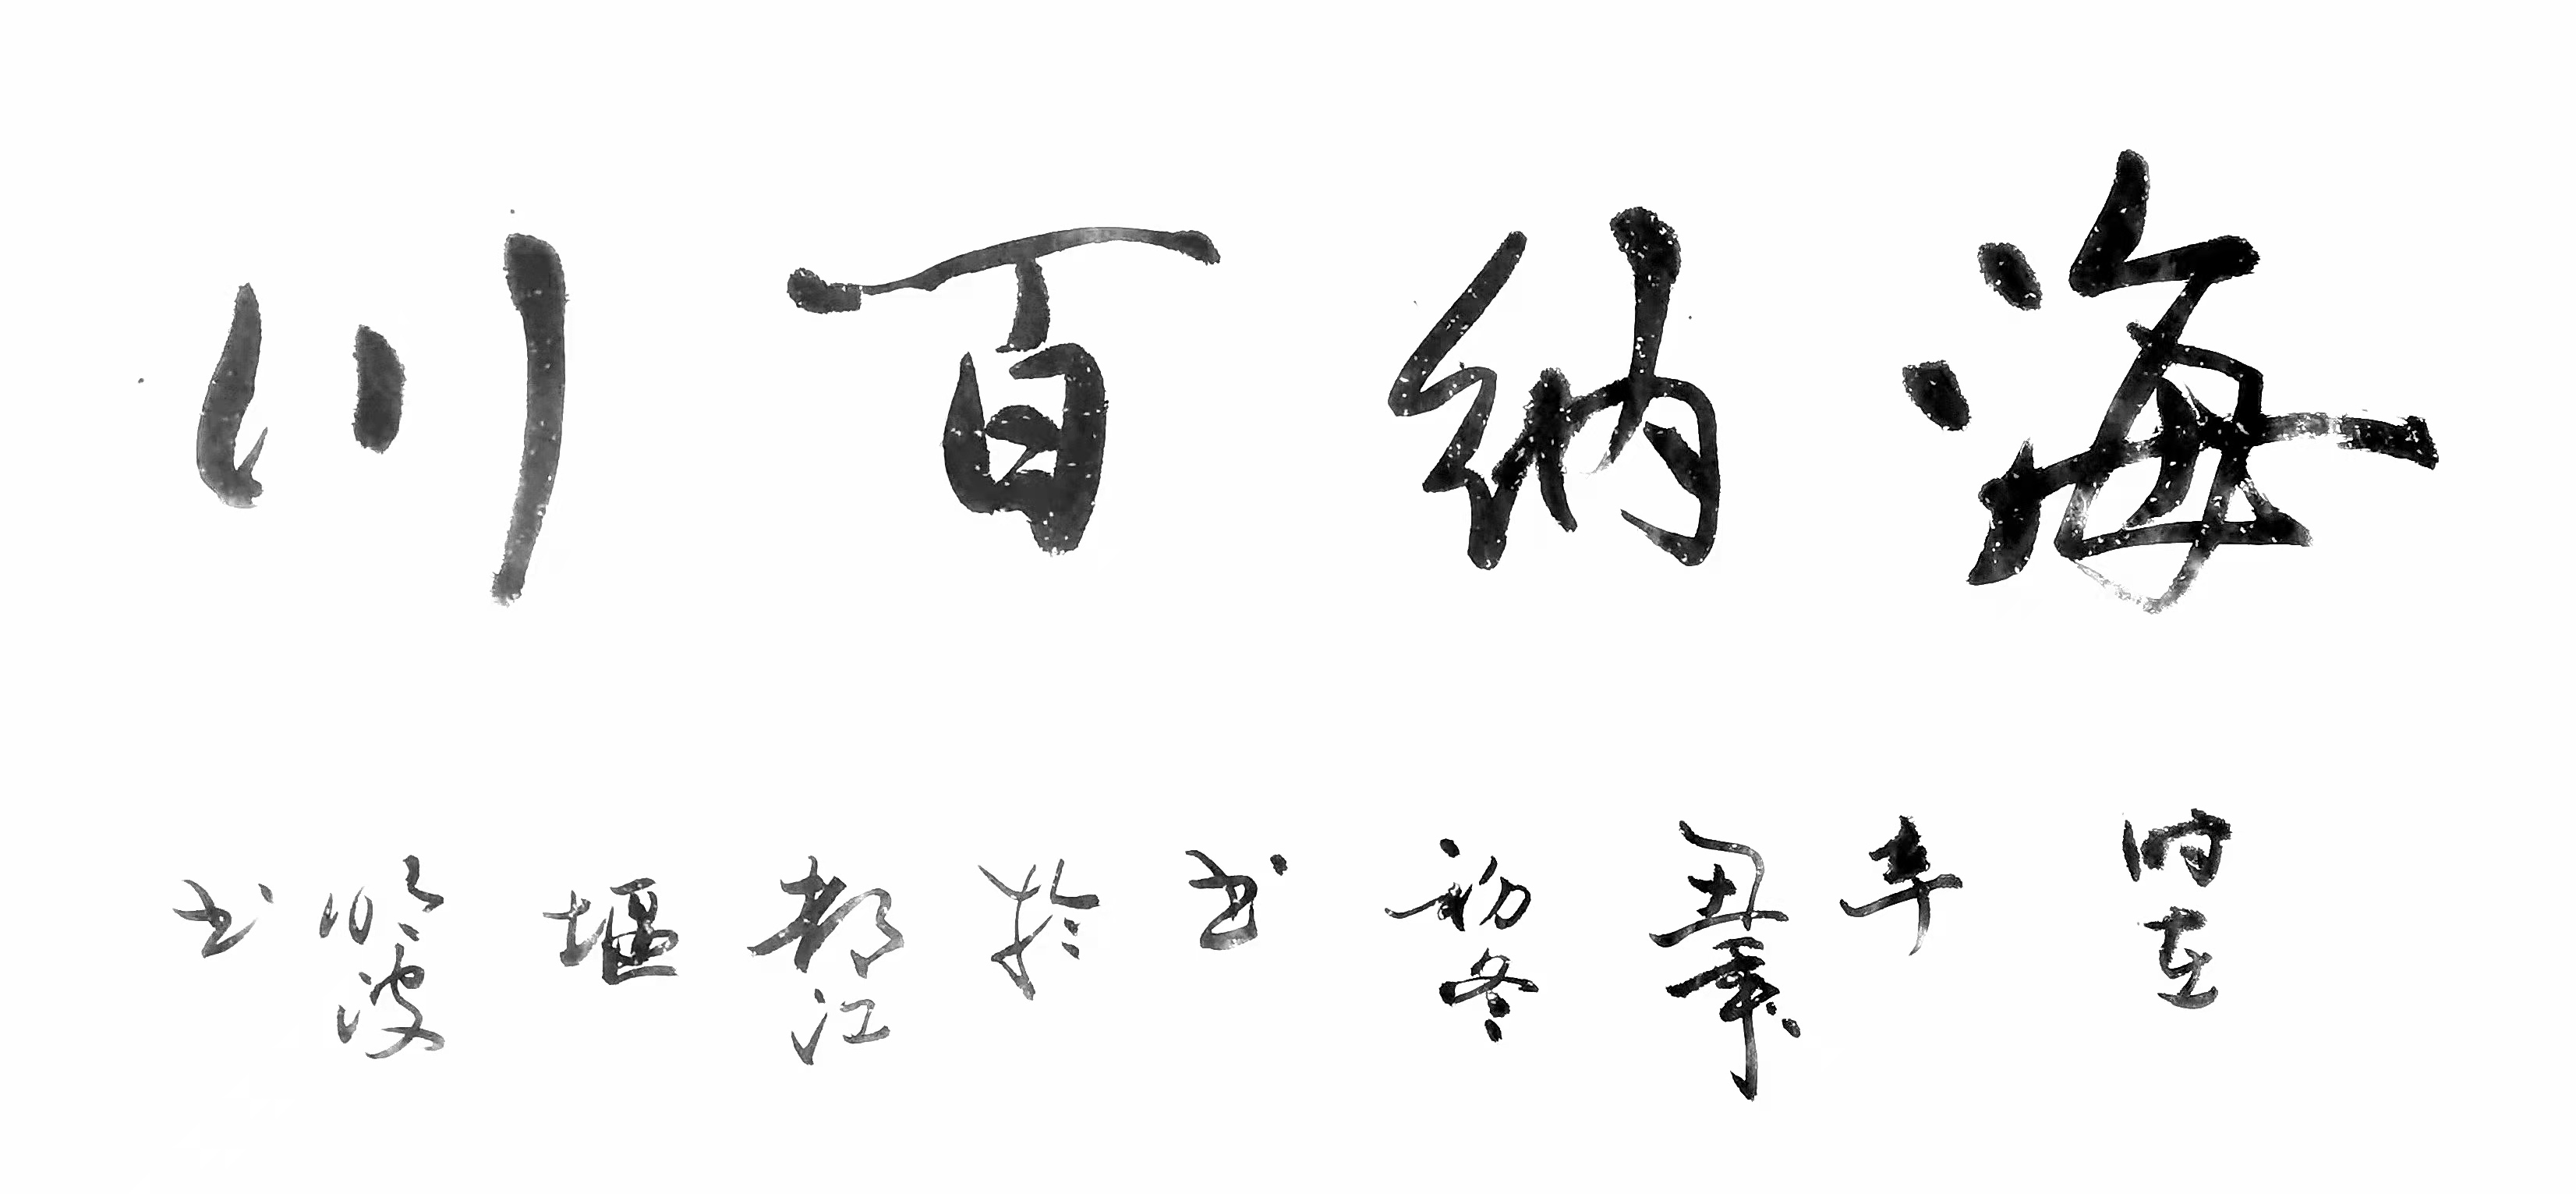 海纳百川
时在辛丑年初冬书於都江堰波书